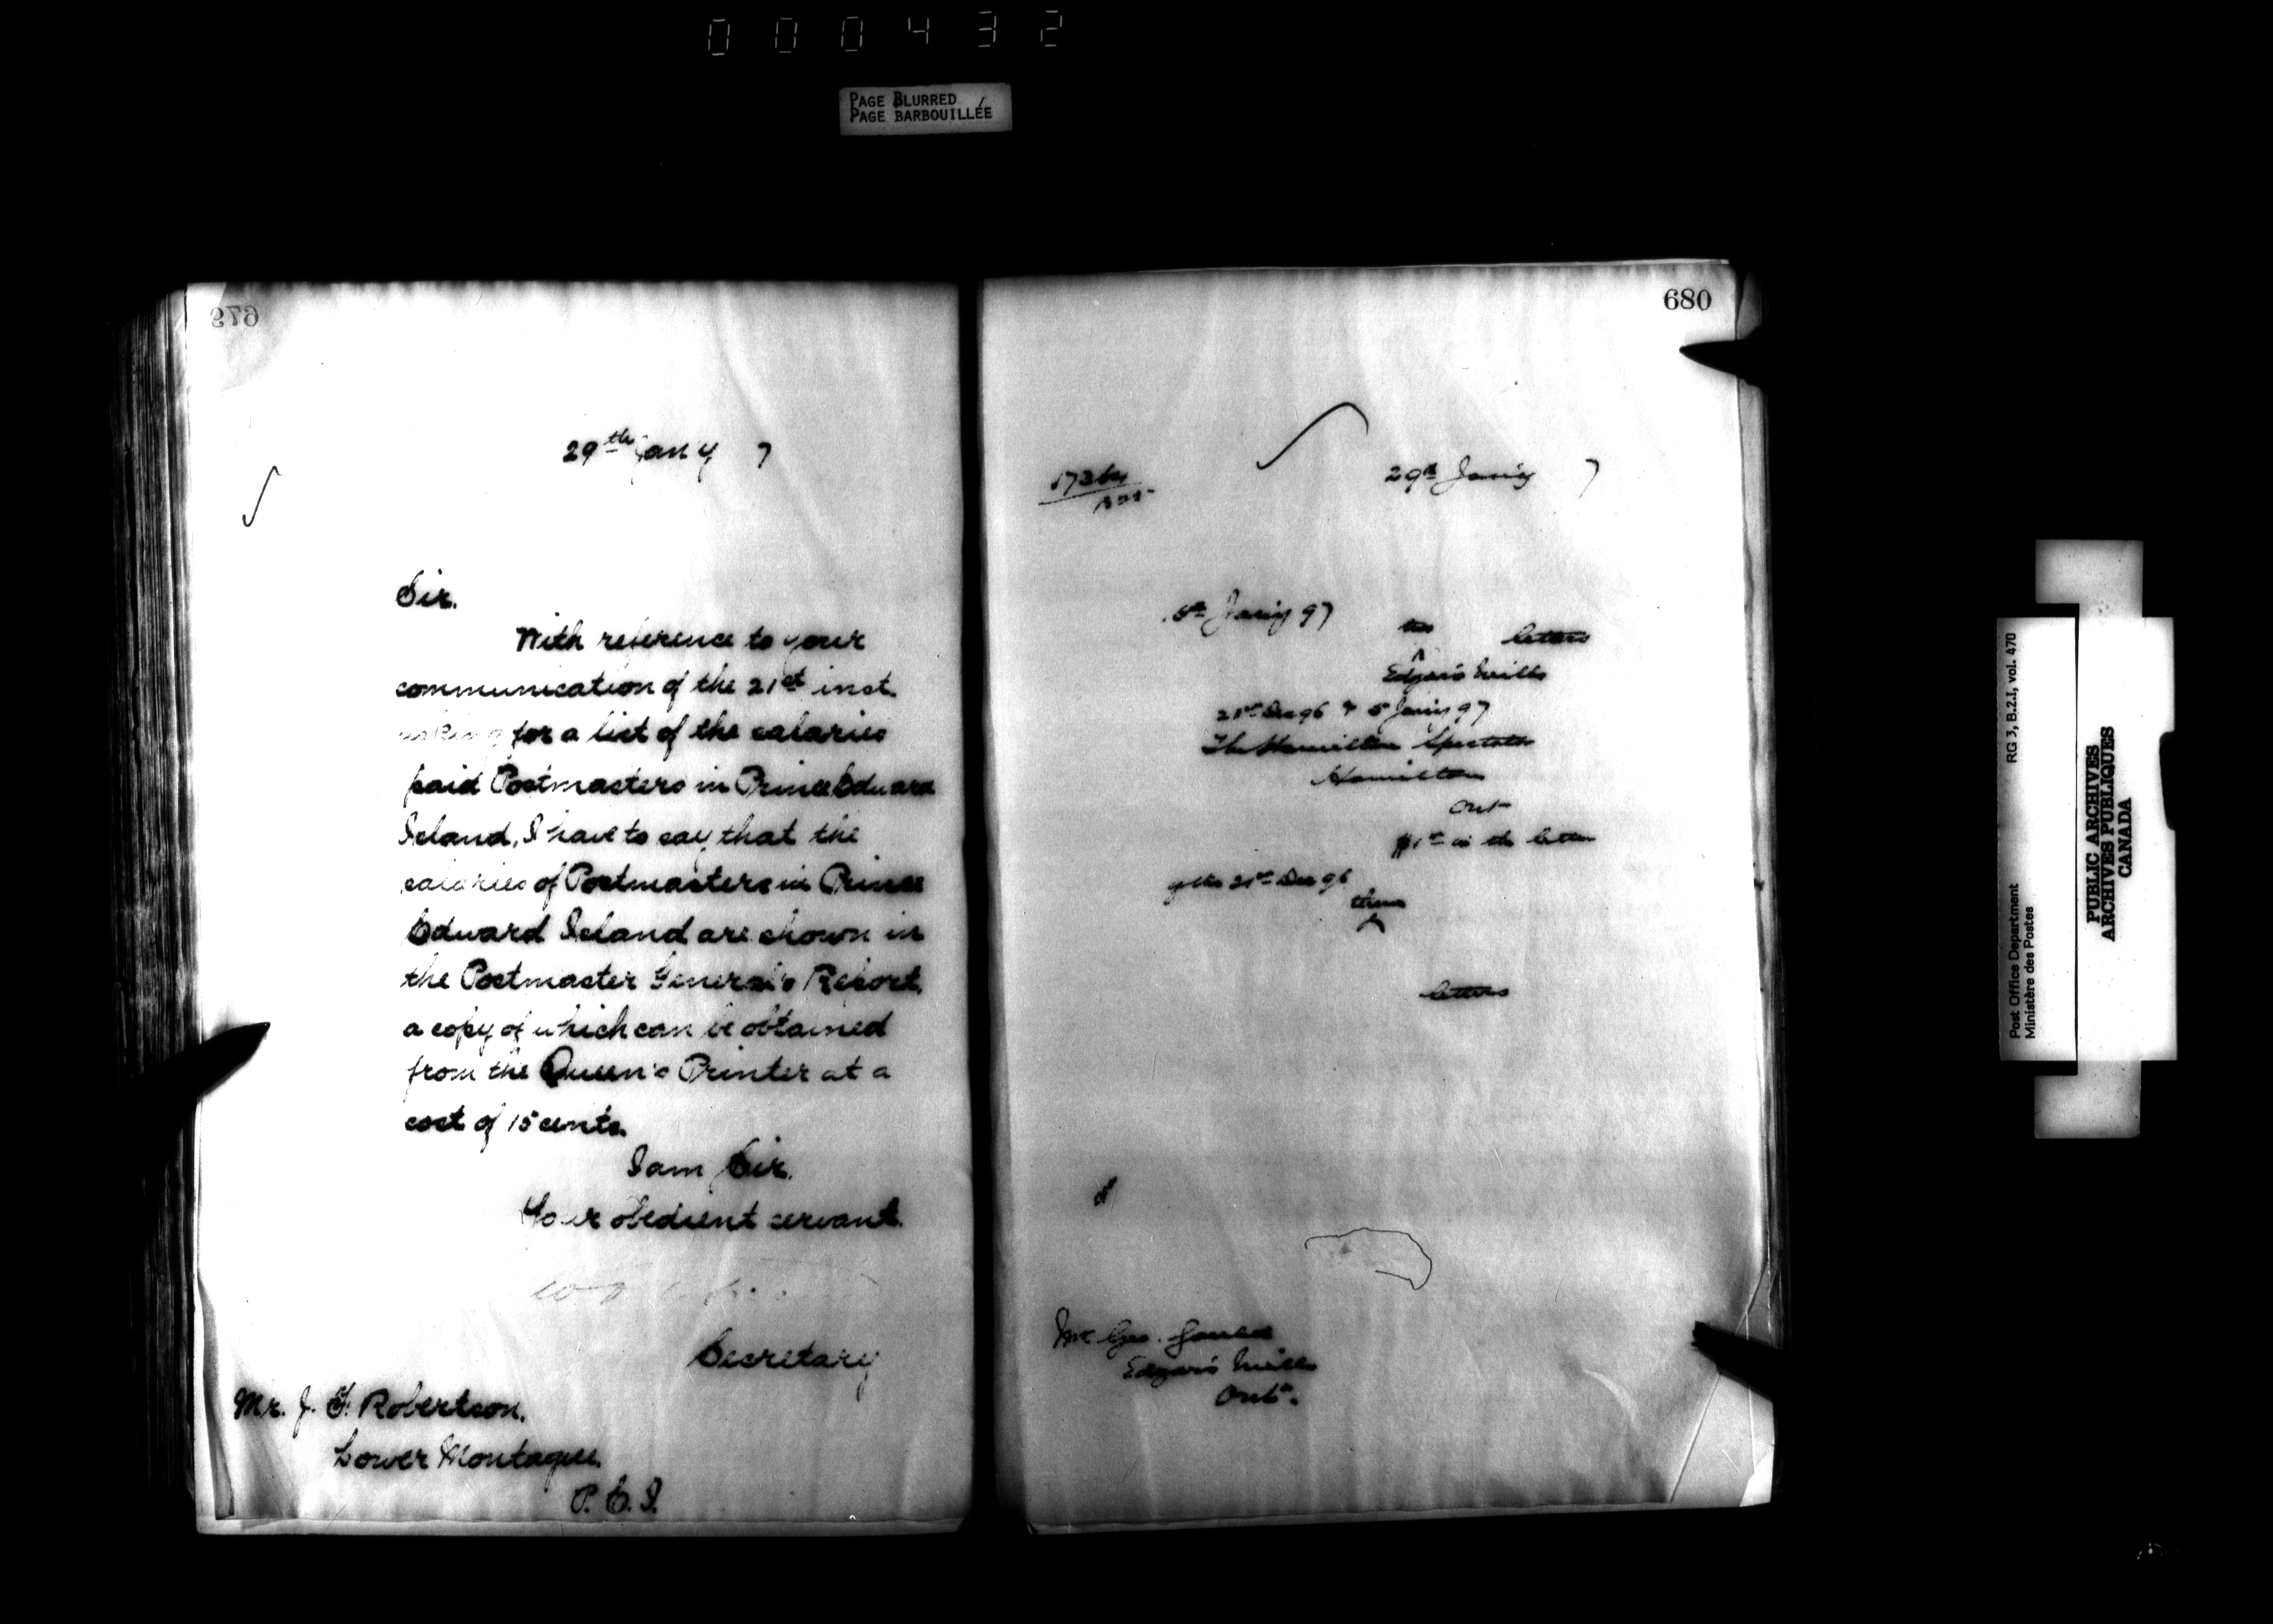 000432
PAGE BLURRED
PAGE BARBOUILLÉE
679
29th Jany 7
Sir.
With reference to your
communication of the 21st inst.
asking for a list of the salaries
paid Postmasters in Prince Edward
Island, I have to say that the
salaries of Postmasters in Prince
Edward Island are shown in
the Postmaster General's Report,
a copy of which can be obtained
from the Queen's Printer at a
cost of 15 cents.
I am, Sir,
Your obedient servant.
Secretary
Mr. J. F. Robertson,
Lower Montague,
P.E.I.
680
29th Jan'y 7
5th Jan'y 97
two letters
Edgar's Mills
21st Dec 96 & 5 Jan'y 97
The Hamilton Spectator
Hamilton
Ont
$1 in the letter
of the 21st Dec 96
these
letters
Mr Geo.
Edgar's Mills
Ont.
Post Office Department RG 3, B.2.I, vol. 470
Ministère des Postes
PUBLIC ARCHIVES
ARCHIVES PUBLIQUES
CANADA